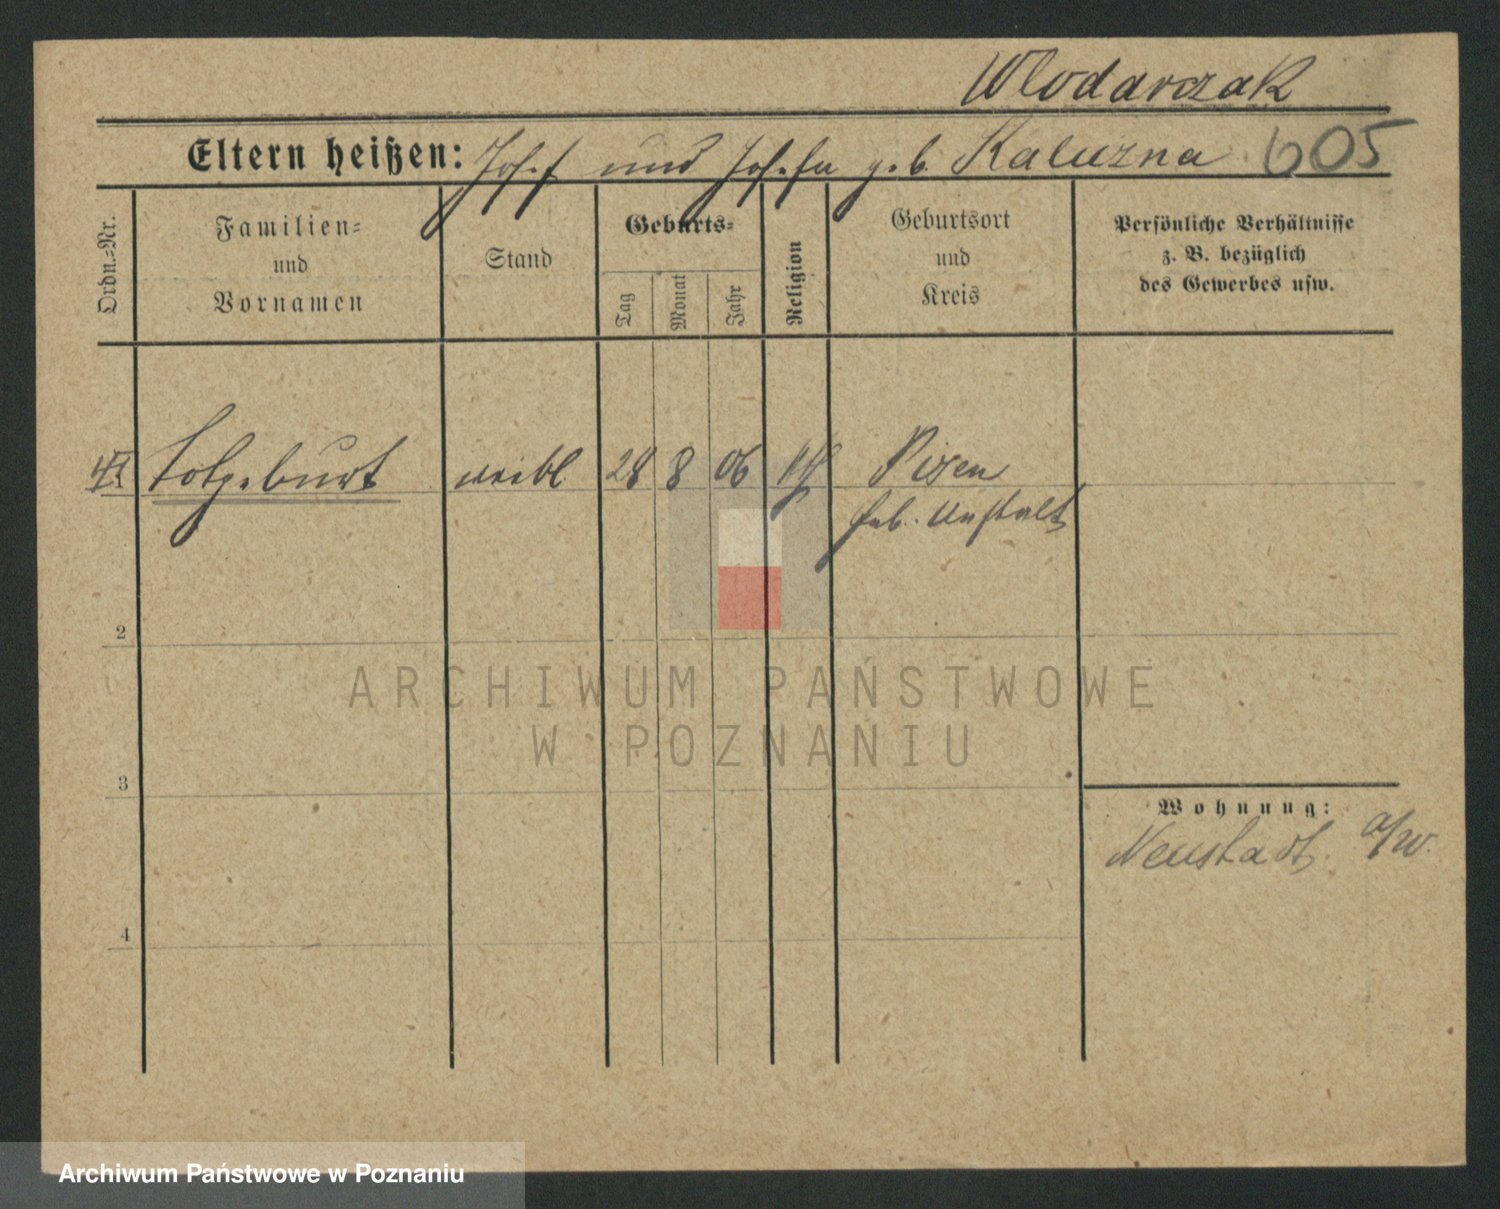 Wlodarczak
Eltern heißen: Josef und Josefa geb. Kaluzna 605
Ordn.-Nr.
Familien-
und
Vornamen
Stand
Geburts-
Tag
Monat
Jahr
Religion
Geburtsort
und
Kreis
Persönliche Verhältnisse
z. B. bezüglich
des Gewerbes usw.
Totgeburt weibl 28 8 06 Posen
Anstalt
2
3
4
Wohnung:
Neustadt a/W.
ARCHIWUM PAŃSTWOWE
W POZNANIU
Archiwum Państwowe w Poznaniu